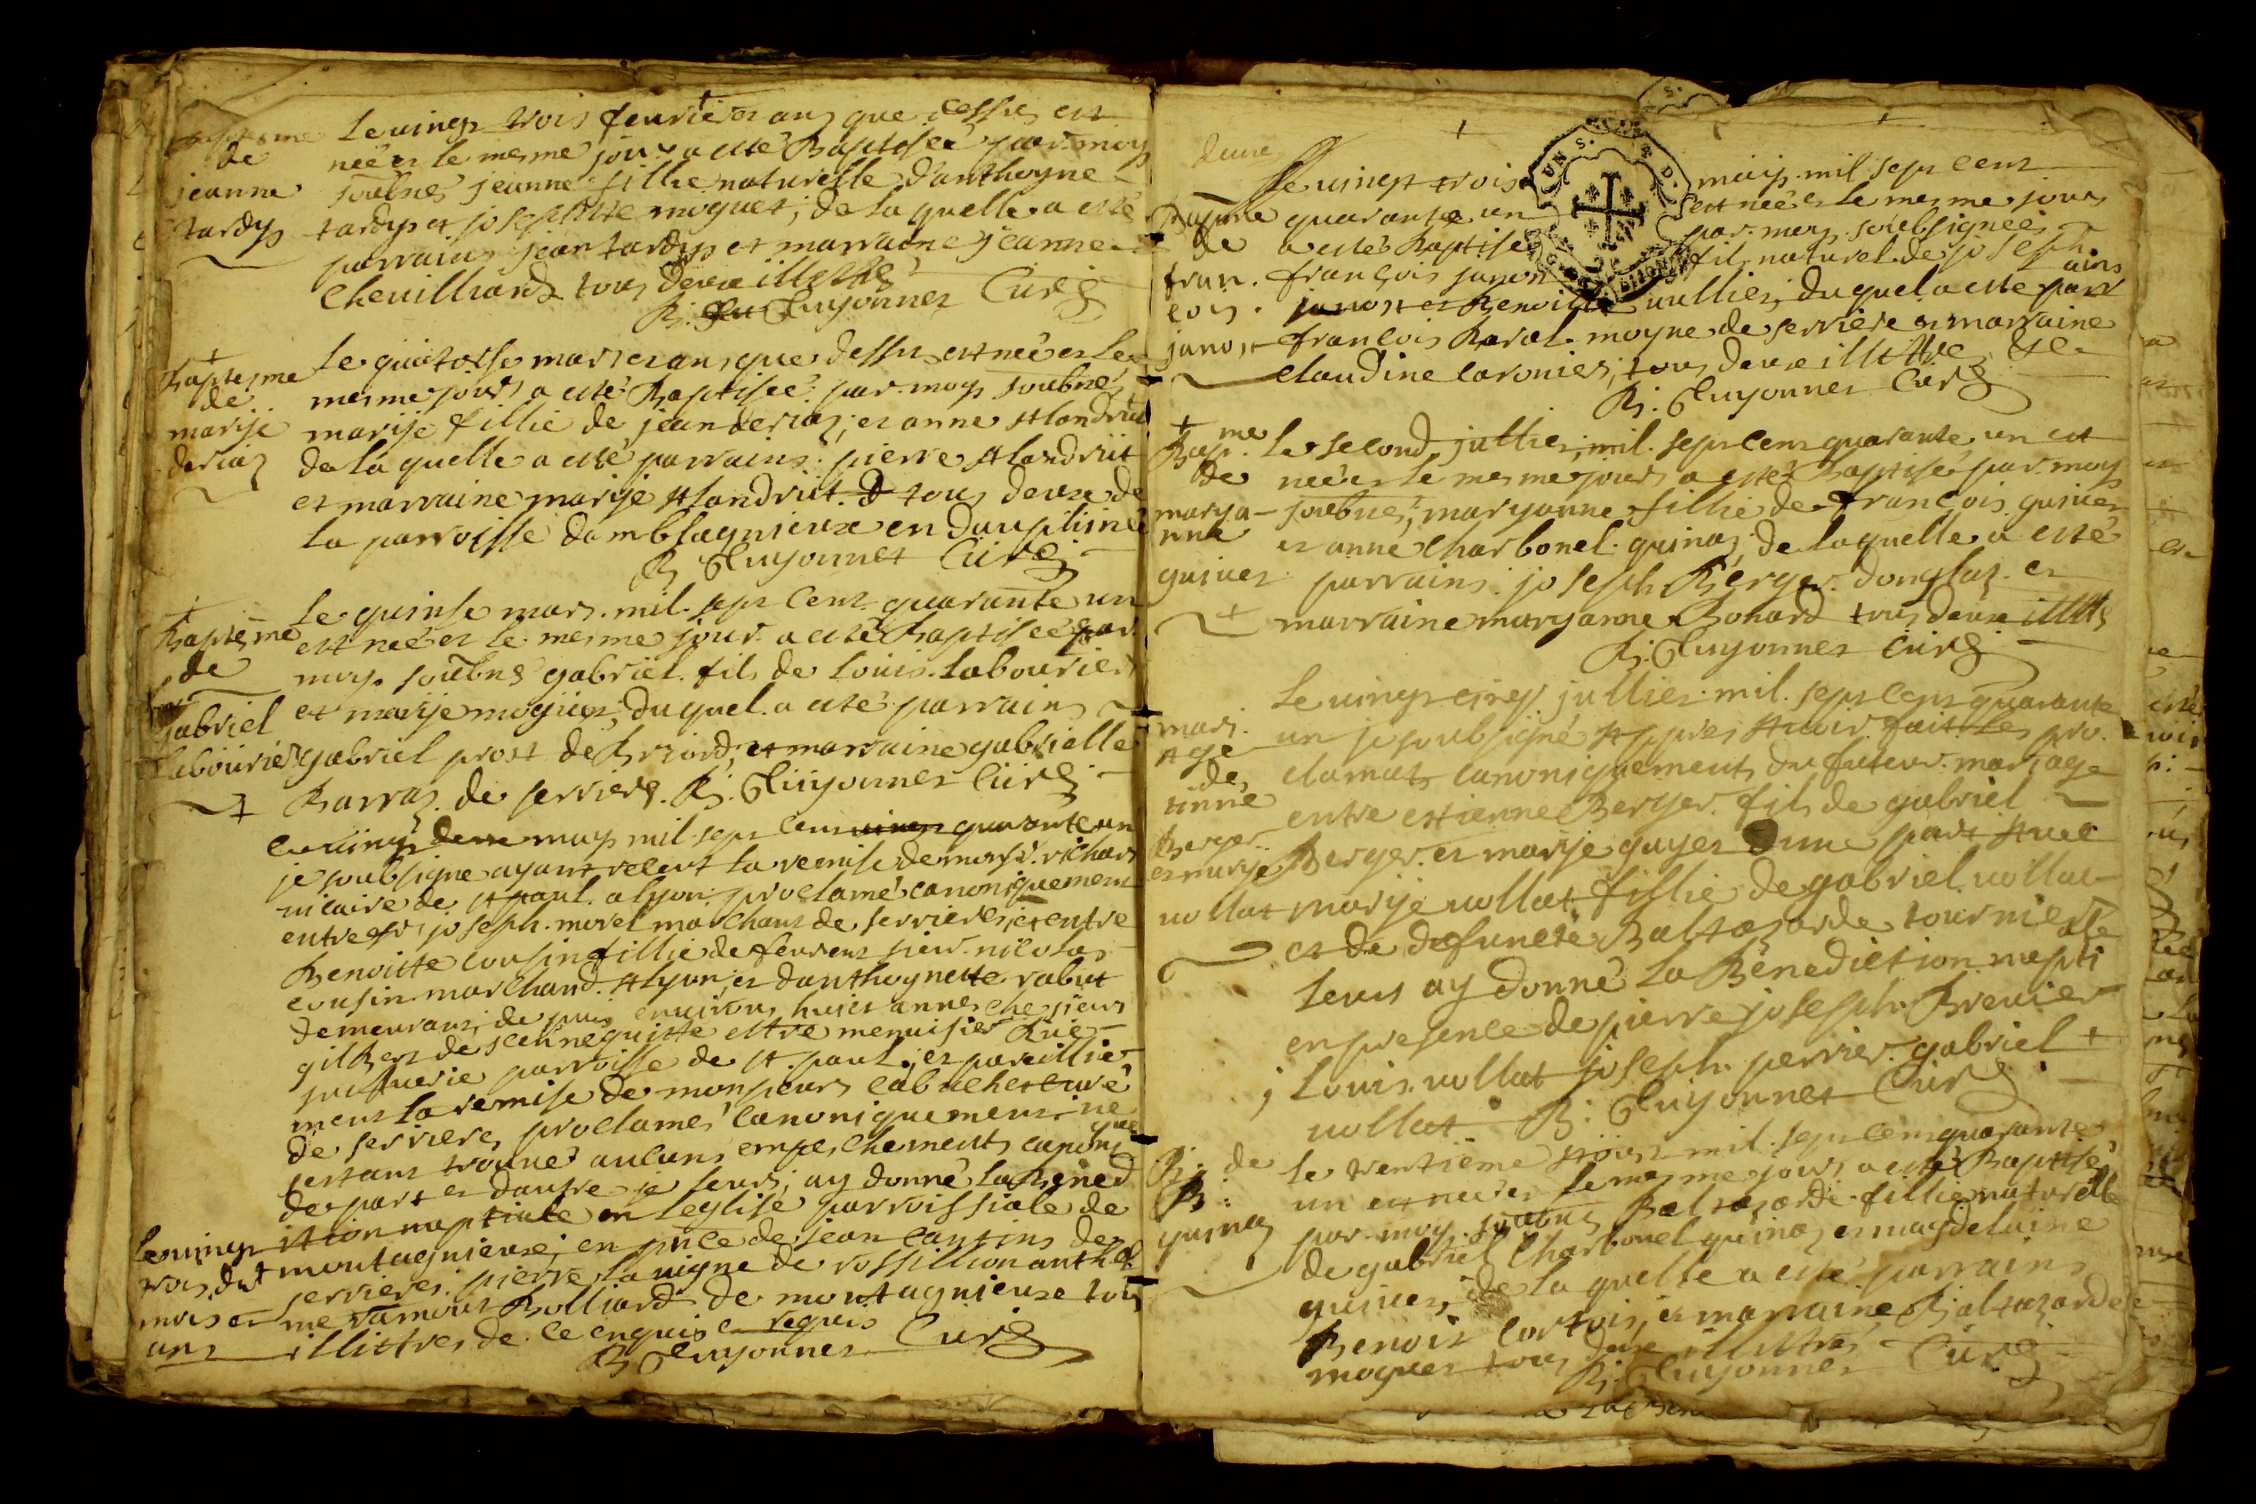 Baptesme
de
jeanne
tardy
Le vingt trois feurier et an que dessus est
née et le mesme jour a esté Baptisée par moy
soubné jeanne fillie naturelle d'anthoyne
tardy et josephte moguet; de la quelle a esté
parrains jean tardy et marraine jeanne
Cheuilliard tous deux illettré
R. Guyonnet Curé
Baptesme
de
marije
deriaz
Le quatorse mars et an que dessus est née et le
mesme jour a esté Baptisée par moy soubné
marije fillie de jean deriaz; et anne Alandrut
de la quelle a esté parrains pierre Alandrut
et marraine marije Alandrut tous deux de
la parroisse damblagnieux en dauphiné
R Guyonnet Curé
Baptesme
de
gabriel
labourier
Le quinse mars mil sept cent quarante un
est née et le mesme jour a esté baptisée par
moy soubné gabriel fils de Louis labourier
et marije moguet, du quel a esté parrains
gabriel prost de Briord, et marraine gabrielle
Barraz de serriere R. Guyonnet Curé
Le vingt deux may mil sept cent quarante un
je soubsigne ayant recut la remise de monsr. richard
vicaire de st paul a lyon proclamé canoniquement
entre sr joseph morel marchant de serrieres, et entre
Benoitte cousin fillie de feu sieur nicolas
cousin marchand Alyon, et danthoynette rabut
demeurant, de puis environs huict annes che sieur
gilbert de maitre menuisier Rue
juifuerie parroisse de st. paul, et pareillie
ment la remise de monsieur cabuchet curé
de serrieres proclamés canoniquement ne
sestant trouué aucuns empeschements canoni
que
de part et dautre je leurs, ay donné la Bened
ition nuptiale en leglise parroissiale de
montagnieux; en pnce de jean cantins de
serrieres pierre lauigne de rossillion anthel
me ramoux Rolliard de montagnieux tous
illittres de ce enquis et requis
R Guyonnet Curé
Le vingt
trois dut
mois et
ans
deux
Bapme
de
fran
çois
janost
Le vingt trois may mil sept cent
quarante un est née et le mesme jour
a esté baptisé par moy soubsignée
françois janost fils naturel de joseph
janost et Benoitte vullier, du quel a esté parr
ains
françois Baral moyne de serriere et marraine
claudine caronier, tous deux illettre
R. Guyonnet Curé
Bapme
de
marya
nne
guinet
Le second jullier mil sept cent quarante un est
née et le mesme jour a estez Baptisé par moy
soubné, maryanne fillie de françois guinet
et anne charbonel guinaz, de la quelle a esté
parrains joseph Berger donglaz et
marraine maryanne Bonard tous deux illitts
R. Guyonnet Curé
mari
age
de
tienne
Berger
et marije
vollat
Le vingt cinq jullier mil sept cent quarante
un je soubsigné Apres Auoir fait les pro
clamats canoniquements du futeur mariage
entre estienne Berger fils de gabriel
Berger et marije guyet dune part Auec
marije vollat fillie de gabriel vollat
et de defuncte Baltazarde tournier
leurs ay donné la Benediction nupti
alle
en presence de pierre joseph Breuier
Louis vollat joseph perrier gabriel
vollat R. Guyonnet Curé
B. de
B.
guinaz
Le trentieme Aoust mil sept cent quarante
un est née et le mesme jour a esté Baptisé
par moy soubné Baltazarde fillie naturelle
de gabriel Charbonel guinaz et magdelaine
guinet, de la quelle a esté parrains
Benoit cortois, et marraine Baltazarde
moguet tous deux illittré
R. Guyonnet Curé